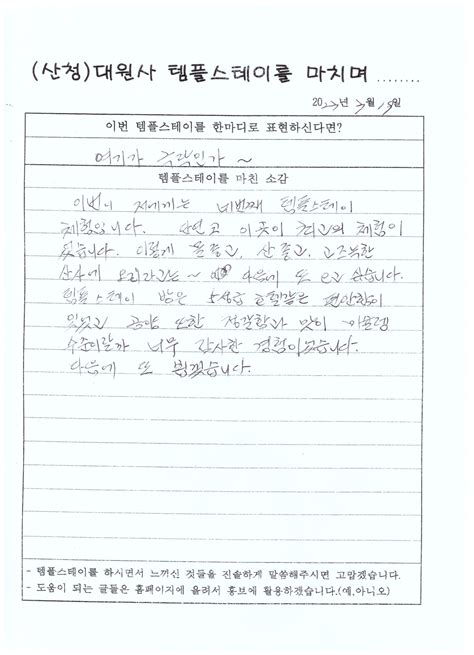 (산청)대원사 템플스테이를 마치며........
2023년 3월 19일
이번 템플스테이를 한마디로 표현하신다면?
여기가 극락인가 ~
템플스테이를 마친 소감
이번이 저에게는 네번째 템플스테이
체험입니다. 단연코 이곳이 최고의 체험이
었습니다. 이렇게 물좋고, 산좋고, 고즈넉한
산사에 오리라고는 ~ 다음에 또 오고 싶습니다.
템플스테이 방은 5성급 호텔같은 편안함이
있었고 공양 또한 정갈함과 맛이 미슐랭
수준이랄까 너무 감사한 경험이었습니다.
다음에 또 뵙겠습니다.
- 템플스테이를 하시면서 느끼신 것들을 진솔하게 말씀해주시면 고맙겠습니다.
- 도움이 되는 글들은 홈페이지에 올려서 홍보에 활용하겠습니다.(예,아니오)